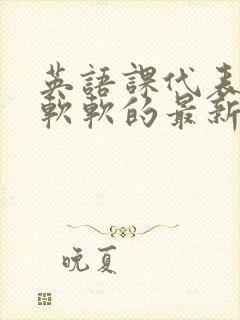 英語課代表
軟軟的最新
晚夏